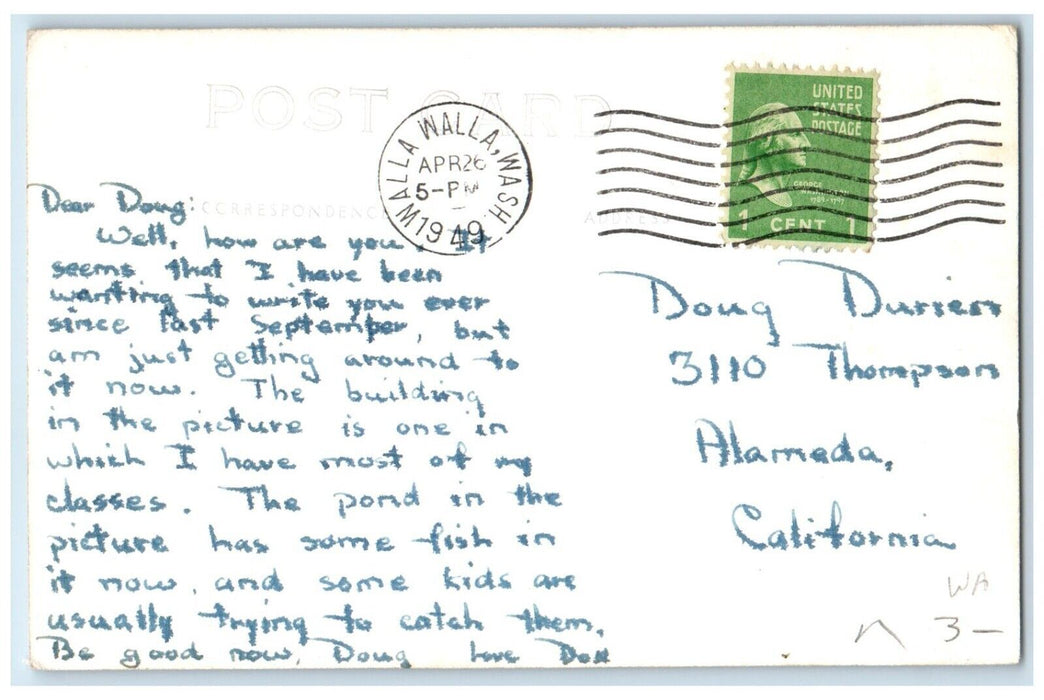 POST CARD
WALLA WALLA, WASH.
APR 26
5-PM
1949
UNITED
STATES
POSTAGE
GEORGE WASHINGTON
1789-1797
1 CENT 1
CORRESPONDENCE
ADDRESS
Dear Doug:
Well, how are you. It
seems that I have been
wanting to write you ever
since last September, but
am just getting around to
it now. The building
in the picture is one in
which I have most of my
classes. The pond in the
picture has some fish in
it now, and some kids are
usually trying to catch them.
Be good now, Doug Love
Doug
3110 Thompson
Alameda,
California
WA
3-